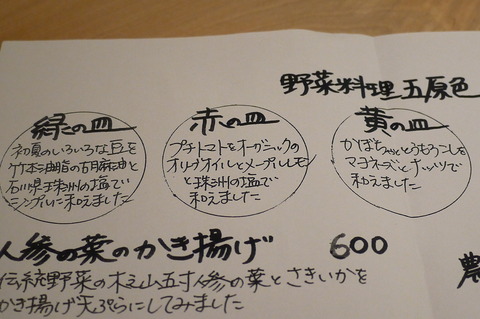 野菜料理 五原色
緑の皿
初夏のいろいろな豆を
竹本油脂の胡麻油と
石川県珠洲の塩で
シンプルに和えました
赤の皿
プチトマトをオーガニックの
オリーブオイルとメープル、レモン
と珠洲の塩で
和えました
黄の皿
かぼちゃととうもろこしを
マヨネーズとナッツで
和えました
人参の葉のかき揚げ 600
伝統野菜の木之山五寸人参の葉とさきいかを
かき揚げ天ぷらにしてみました
農